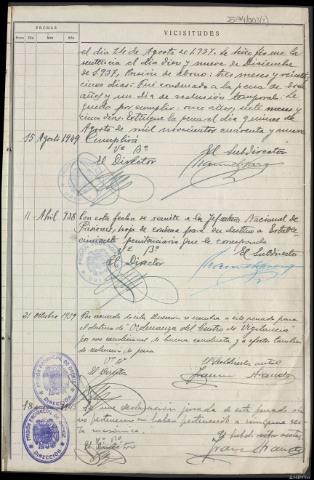 FECHAS
VICISITUDES
Día
Mes
Año
el día 24 de Agosto de 1.937. Se hizo firme la
sentencia el día diez y nueve de Diciembre
de 1.937, bonin de abono: tres meses y veinti
cinco días. Fué condenado a la pena de doce
años y un día de reclusión temporal. Le
queda por cumplir: once años, siete meses y
cinco días. Extingue la pena el día quince de
Agosto de mil novecientos cuarenta y nueve
15 Agosto 1949
Cumplirá
Vº Bº
El Subdirector
El Director
11 Abril 938
Con esta fecha se remite a la Jefatura Nacional de
Prisiones, hoja de condena para su destino a Estable-
cimiento penitenciario que le corresponda
Vº Bº
El Subdirector
El Director
21 Octubre 1939
Por acuerdo de esta Dirección se nombra a este penado para
el destino de "Ordenanza del Centro de Vigilancia"
por sus condiciones de buena conducta y a efectos
de redención de pena
Vº Bº
El Director
18
declaración jurada de este penado
no pertenecer ni haber pertenecido a ninguna sec
ta masónica.
Vº Bº
El Director
DIRECCION